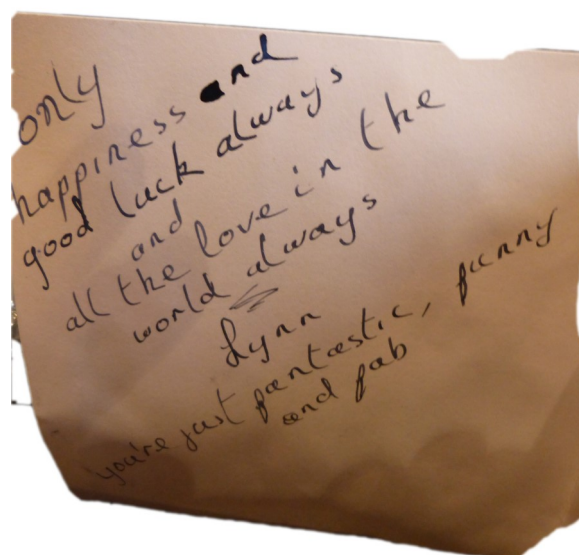 only
happiness and
good luck always
and
all the love in the
world always
Lynn
you're just fantastic, funny
and fab